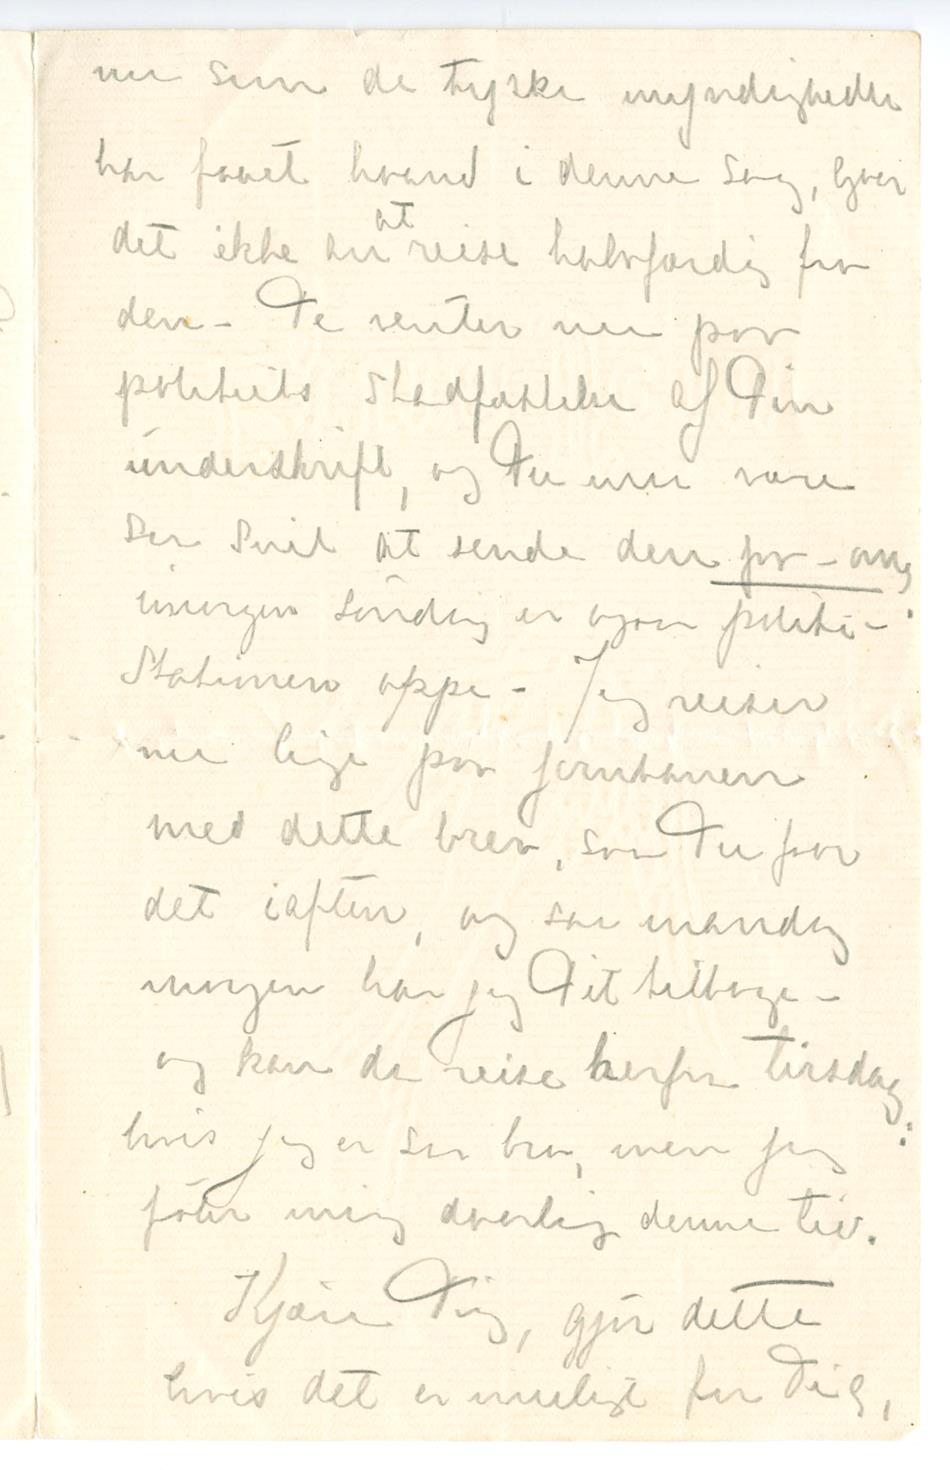 nu som de tyske myndigheder
har faaet haand i denne sag, gaar
det ikke an at reise halvfærdig fra
den – De venter nu paa
politiets Stadfæstelse af Din
underskrift, og Du maa være
saa snil at sende den
imorgen søndag er ogsaa politi-
Stationen oppe – Jeg reiser
nu lige paa jernbanen
med dette brev, saa Du faar
det iaften, og saa mandag
morgen har jeg Dit tilbage –
og kan da reise herfra tirsdag
hvis jeg er saa bra, men jeg
føler mig daarlig denne tid.
Kjære Dig, gjør dette
hvis det er muligt for Dig,